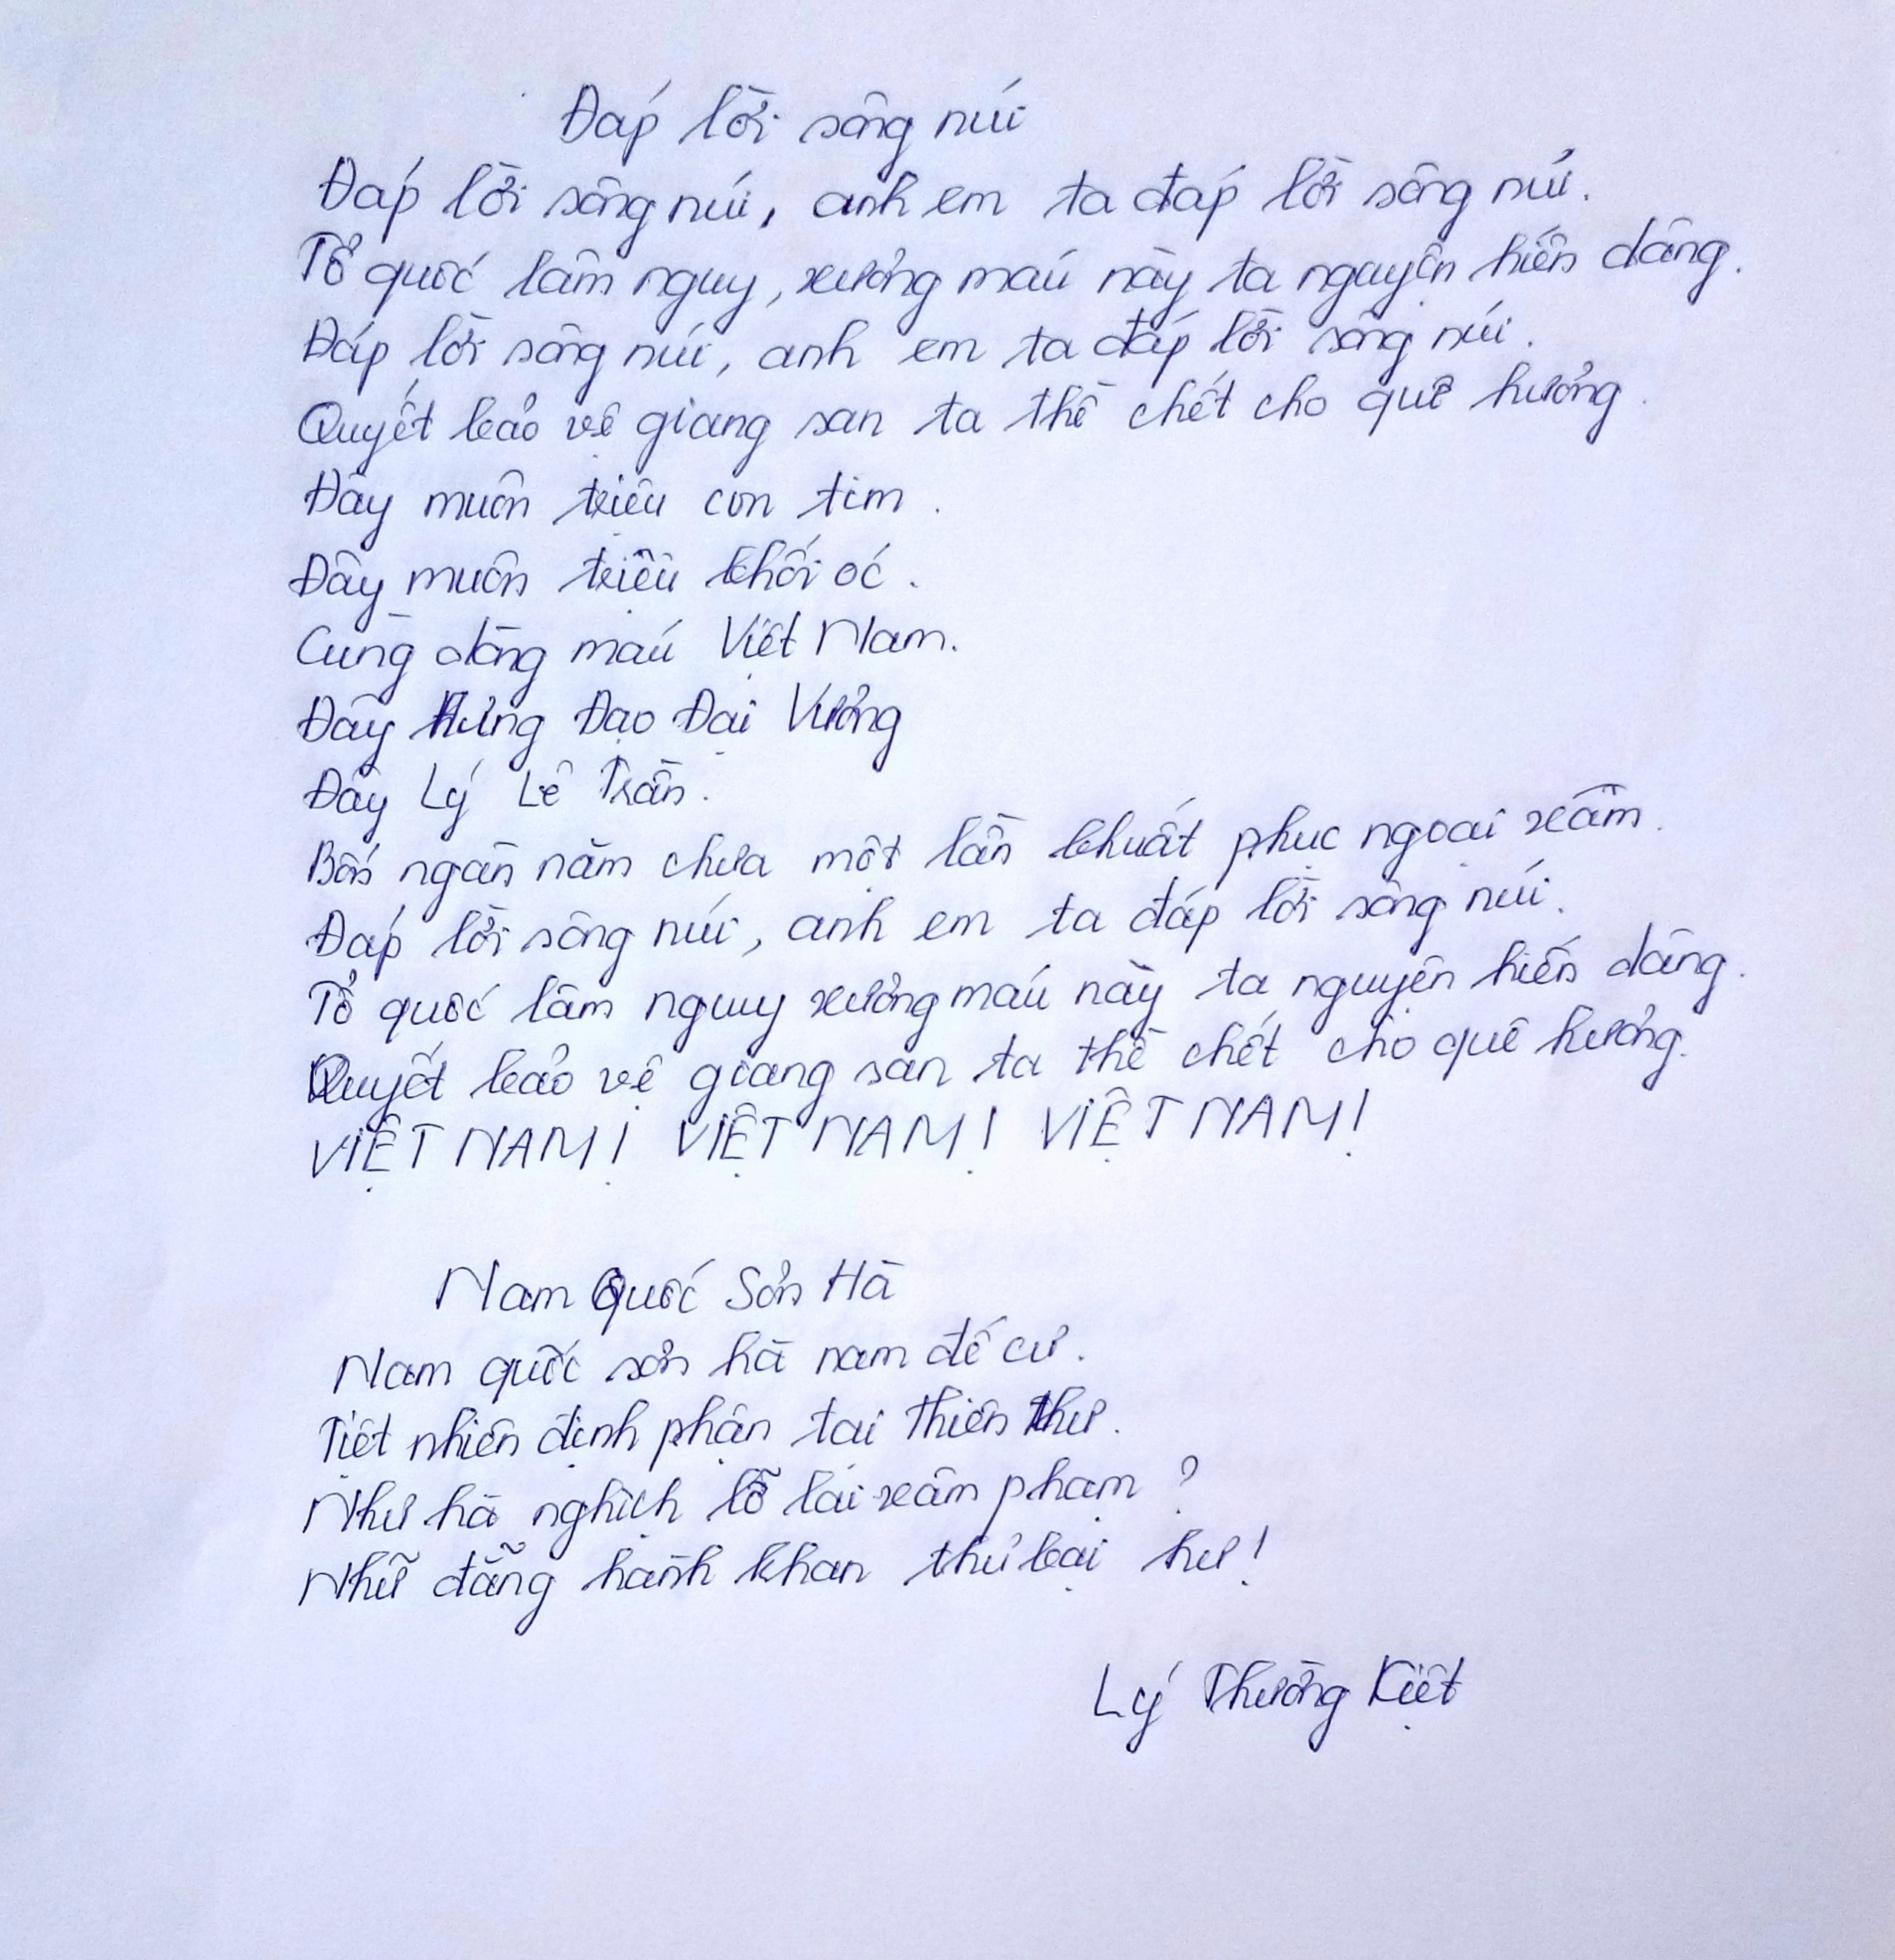 Đáp lời sông núi
Đáp lời sông núi, anh em ta đáp lời sông núi.
Tổ quốc lâm nguy, xương máu này ta nguyện hiến dâng.
Đáp lời sông núi, anh em ta đáp lời sông núi.
Quyết bảo vệ giang san ta thề chết cho quê hương.
Đây muôn triệu con tim.
Đây muôn triệu khối óc.
Cùng dòng máu Việt Nam.
Đây Hưng Đạo Đại Vương
Đây Lý Lê Trần.
Bốn ngàn năm chưa một lần khuất phục ngoại xâm.
Đáp lời sông núi, anh em ta đáp lời sông núi.
Tổ quốc lâm nguy xương máu này ta nguyện hiến dâng.
Quyết bảo vệ giang san ta thề chết cho quê hương.
VIỆT NAM! VIỆT NAM! VIỆT NAM!
Nam Quốc Sơn Hà
Nam quốc sơn hà nam đế cư.
Tiệt nhiên định phận tại thiên thư.
Như hà nghịch lỗ lai xâm phạm?
Nhữ đẳng hành khan thủ bại hư!
Lý Thường Kiệt